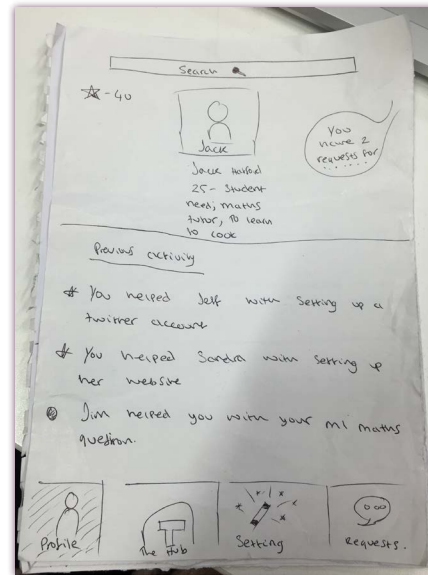 Search
- 40
Jack
You
have 2
requests for
......
Jack
25 - Student
need; maths
tutor, to learn
to cook
Previous activity
You helped Jeff with setting up a
twitter account
You helped Sandra with setting up
her website
Jim helped you with your m1 maths
question.
Profile
The Hub
Setting
Requests.